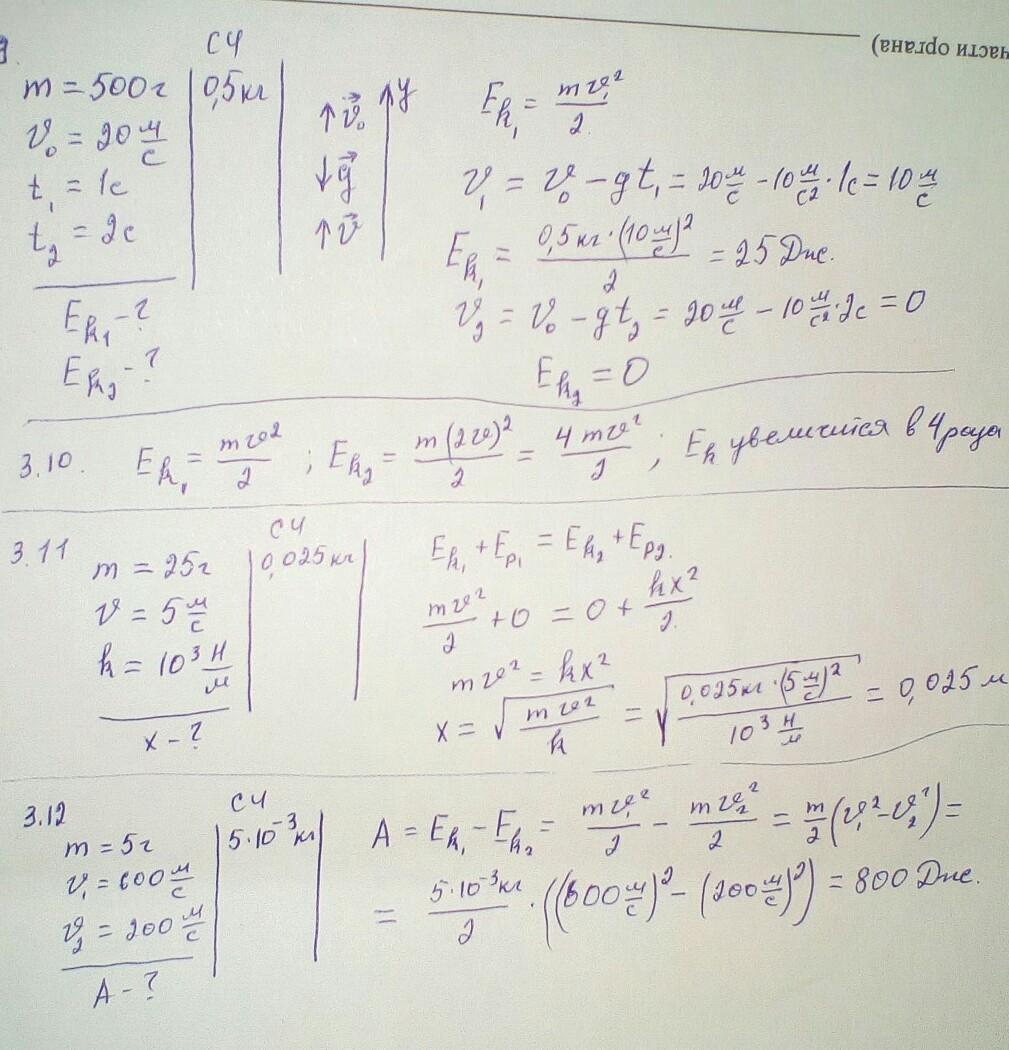 части органо)
9.
СИ
m = 500г | 0,5кг
v₀ = 20 м/с
t₁ = 1с
t₂ = 2с
E_k₁ - ?
E_k₂ - ?
↑v⃗₀ ↑y
↓g⃗
↑v⃗
E_k₁ = mv₁²/2
v₁ = v₀ - gt₁ = 20 м/с - 10 м/с² · 1с = 10 м/с
E_k₁ = 0,5кг·(10 м/с)²/2 = 25 Дж.
v₂ = v₀ - gt₂ = 20 м/с - 10 м/с² · 2с = 0
E_k₂ = 0
3.10. E_k₁ = mv²/2 ; E_k₂ = m(2v)²/2 = 4mv²/2 ; E_k увеличится в 4 раза
3.11
СИ
m = 25г | 0,025кг
v = 5 м/с
k = 10³ Н/м
x - ?
E_k₁ + E_p₁ = E_k₂ + E_p₂.
mv²/2 + 0 = 0 + kx²/2
mv² = kx²
x = √(mv²/k) = √(0,025кг·(5 м/с)²/10³ Н/м) = 0,025 м
3.12
СИ
m = 5г | 5·10⁻³кг
v₁ = 600 м/с
v₂ = 200 м/с
A - ?
A = E_k₁ - E_k₂ = mv₁²/2 - mv₂²/2 = m/2 (v₁² - v₂²) =
= 5·10⁻³кг/2 · ((600 м/с)² - (200 м/с)²) = 800 Дж.